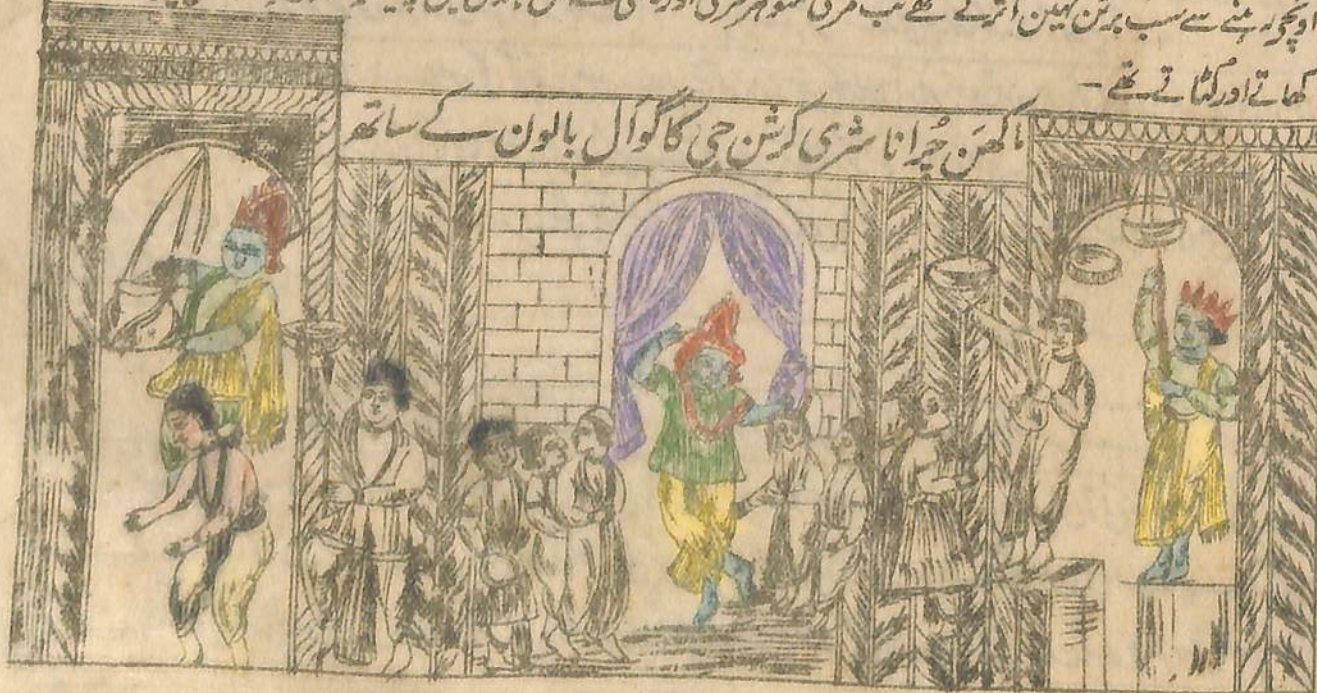 اونچے رہنے سے سب برتن نہین اترتے تھے تب
کھاتے اور لٹاتے تھے -
ماکھن چُرانا شری کرشن جی کا گوال بالون کے ساتھ